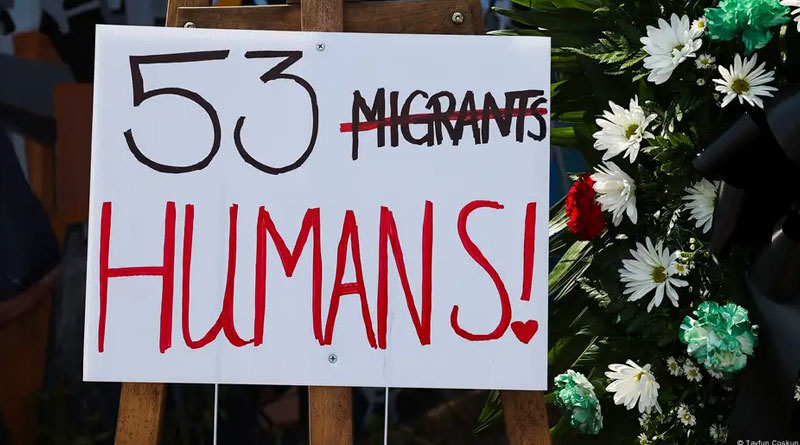 53 MIGRANTS
HUMANS!
© Tayfun Coskun